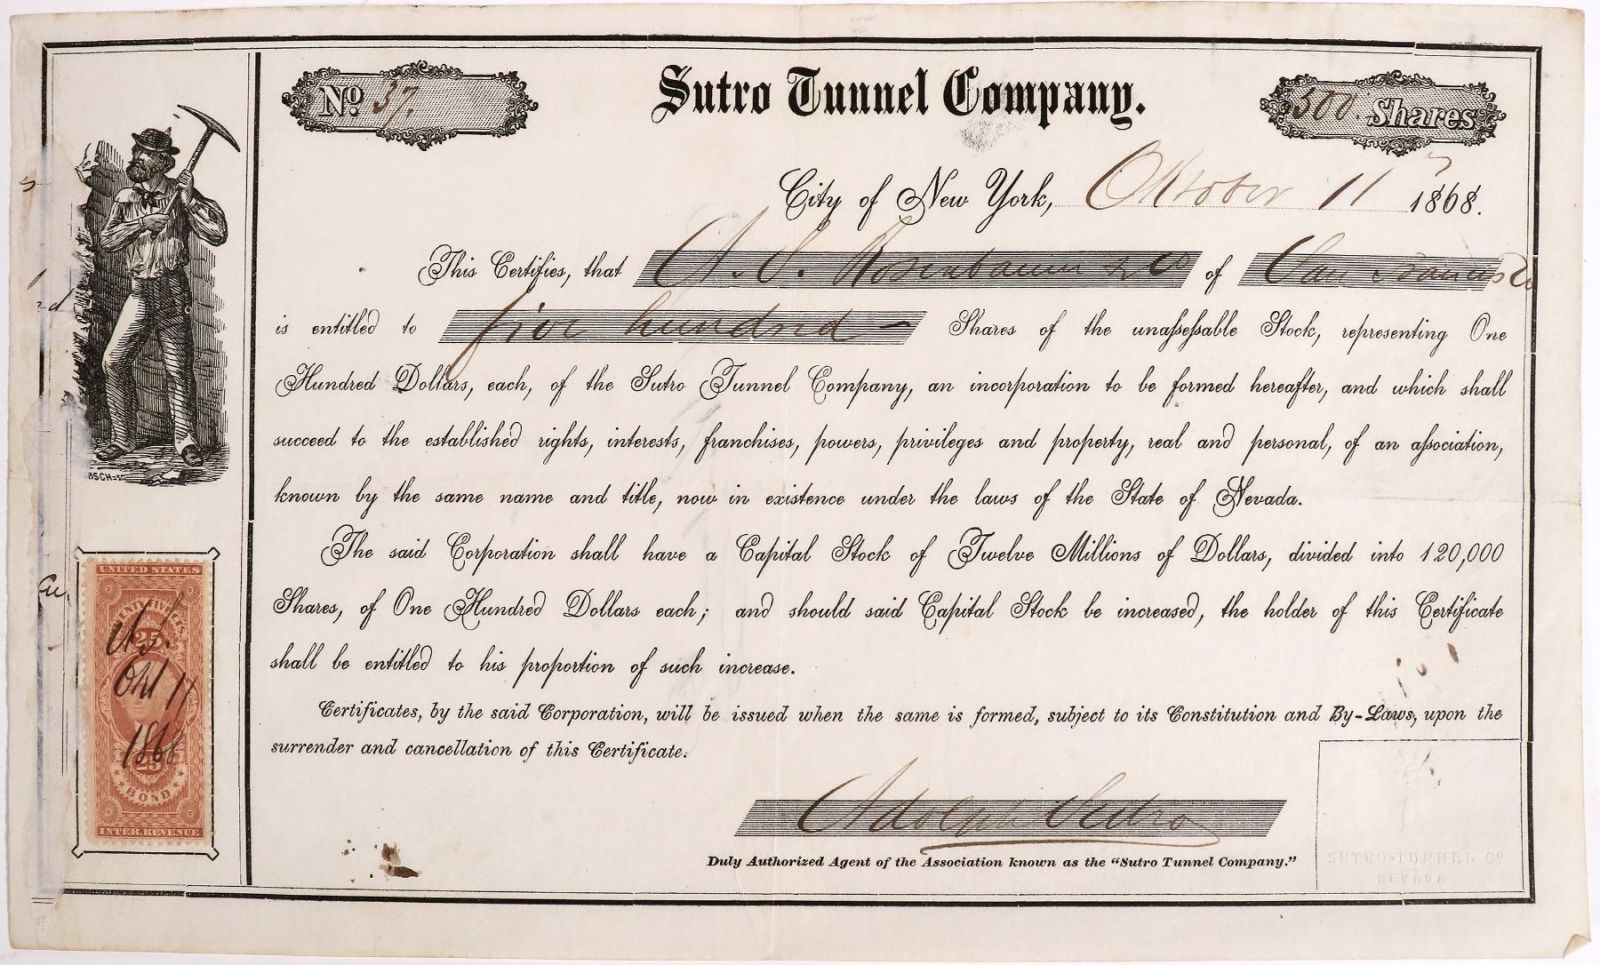 No. 37.
Sutro Tunnel Company.
500. Shares
City of New York, Oktober 11 1868.
This Certifies, that A. S. Rosenbaum & Co of San Francisco
is entitled to five hundred — Shares of the unassessable Stock, representing One
Hundred Dollars, each, of the Sutro Tunnel Company, an incorporation to be formed hereafter, and which shall
succeed to the established rights, interests, franchises, powers, privileges and property, real and personal, of an association,
known by the same name and title, now in existence under the laws of the State of Nevada.
The said Corporation shall have a Capital Stock of Twelve Millions of Dollars, divided into 120,000
Shares, of One Hundred Dollars each; and should said Capital Stock be increased, the holder of this Certificate
shall be entitled to his proportion of such increase.
Certificates, by the said Corporation, will be issued when the same is formed, subject to its Constitution and By-Laws, upon the
surrender and cancellation of this Certificate.
Adolph Sutro
Duly Authorized Agent of the Association known as the "Sutro Tunnel Company."
SUTRO-TUNNEL Co
NEVADA
UNITED STATES
TWENTY FIVE CENTS
25
A.S.
Okt 11
1868
25
BOND
INTER. REVENUE